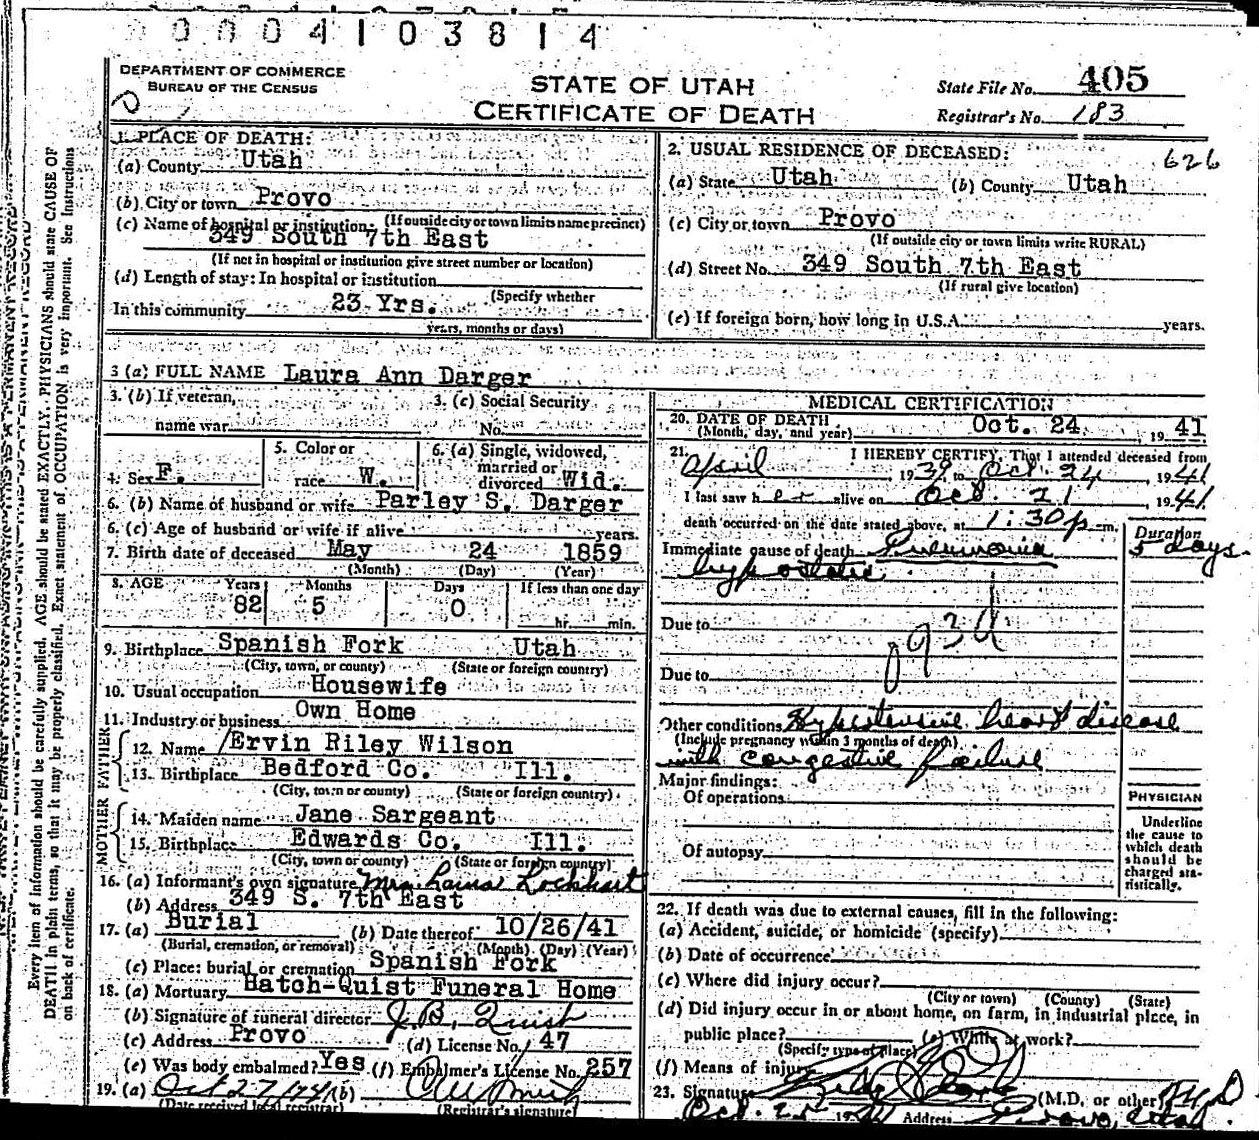 0004103814
DEPARTMENT OF COMMERCE
BUREAU OF THE CENSUS
STATE OF UTAH
CERTIFICATE OF DEATH
State File No. 405
Registrar's No. 183
1. PLACE OF DEATH:
(a) County Utah
(b) City or town Provo
(c) Name of hospital or institution: (If outside city or town limits name precinct)
349 South 7th East
(If not in hospital or institution give street number or location)
(d) Length of stay: In hospital or institution
(Specify whether
In this community 23 Yrs.
years, months or days)
2. USUAL RESIDENCE OF DECEASED: 626
(a) State Utah (b) County Utah
(c) City or town Provo
(If outside city or town limits write RURAL)
(d) Street No. 349 South 7th East
(If rural give location)
(e) If foreign born, how long in U.S.A. years.
3 (a) FULL NAME Laura Ann Darger
3. (b) If veteran, 3. (c) Social Security
name war No.
4. Sex F. 5. Color or race W. 6. (a) Single, widowed, married or divorced Wid.
6. (b) Name of husband or wife Parley S. Darger
6. (c) Age of husband or wife if alive years.
7. Birth date of deceased May 24 1859
(Month) (Day) (Year)
8. AGE Years Months Days If less than one day
82 5 0 hr. min.
9. Birthplace Spanish Fork Utah
(City, town, or county) (State or foreign country)
10. Usual occupation Housewife
11. Industry or business Own Home
FATHER
12. Name Ervin Riley Wilson
13. Birthplace Bedford Co. Ill.
(City, town or county) (State or foreign country)
MOTHER
14. Maiden name Jane Sargeant
15. Birthplace Edwards Co. Ill.
(City, town or county) (State or foreign country)
16. (a) Informant's own signature Mrs. Laura Lockhart
(b) Address 349 S. 7th East
17. (a) Burial (b) Date thereof 10/26/41
(Burial, cremation, or removal) (Month) (Day) (Year)
(c) Place: burial or cremation Spanish Fork
18. (a) Mortuary Hatch-Quist Funeral Home
(b) Signature of funeral director J. B. Quist
(c) Address Provo (d) License No. 47
(e) Was body embalmed? Yes (f) Embalmer's License No. 257
19. (a) Oct 27 1941 (b)
(Date received local registrar) (Registrar's signature)
MEDICAL CERTIFICATION
20. DATE OF DEATH Oct. 24 1941
(Month, day, and year)
21. I HEREBY CERTIFY, That I attended deceased from
April 1939, to Oct. 24, 1941
I last saw her alive on Oct. 21 1941
death occurred on the date stated above, at 1:30 p m.
Duration
Immediate cause of death Pneumonia 5 days.
hypostatic
Due to
Due to
Other conditions Hypertensive heart disease
(Include pregnancy within 3 months of death)
with congestive failure
Major findings:
Of operations
Of autopsy
PHYSICIAN
Underline
the cause to
which death
should be
charged sta-
tistically.
22. If death was due to external causes, fill in the following:
(a) Accident, suicide, or homicide (specify)
(b) Date of occurrence
(c) Where did injury occur?
(City or town) (County) (State)
(d) Did injury occur in or about home, on farm, in industrial place, in
public place? (e) While at work?
(Specify type of place)
(f) Means of injury
23. Signature (M.D. or other) M.D.
Oct. 25 1941 Address Provo, Utah
Every item of information should be carefully supplied. AGE should be stated EXACTLY. PHYSICIANS should state CAUSE OF
DEATH in plain terms, so that it may be properly classified. Exact statement of OCCUPATION is very important. See Instructions
on back of certificate.